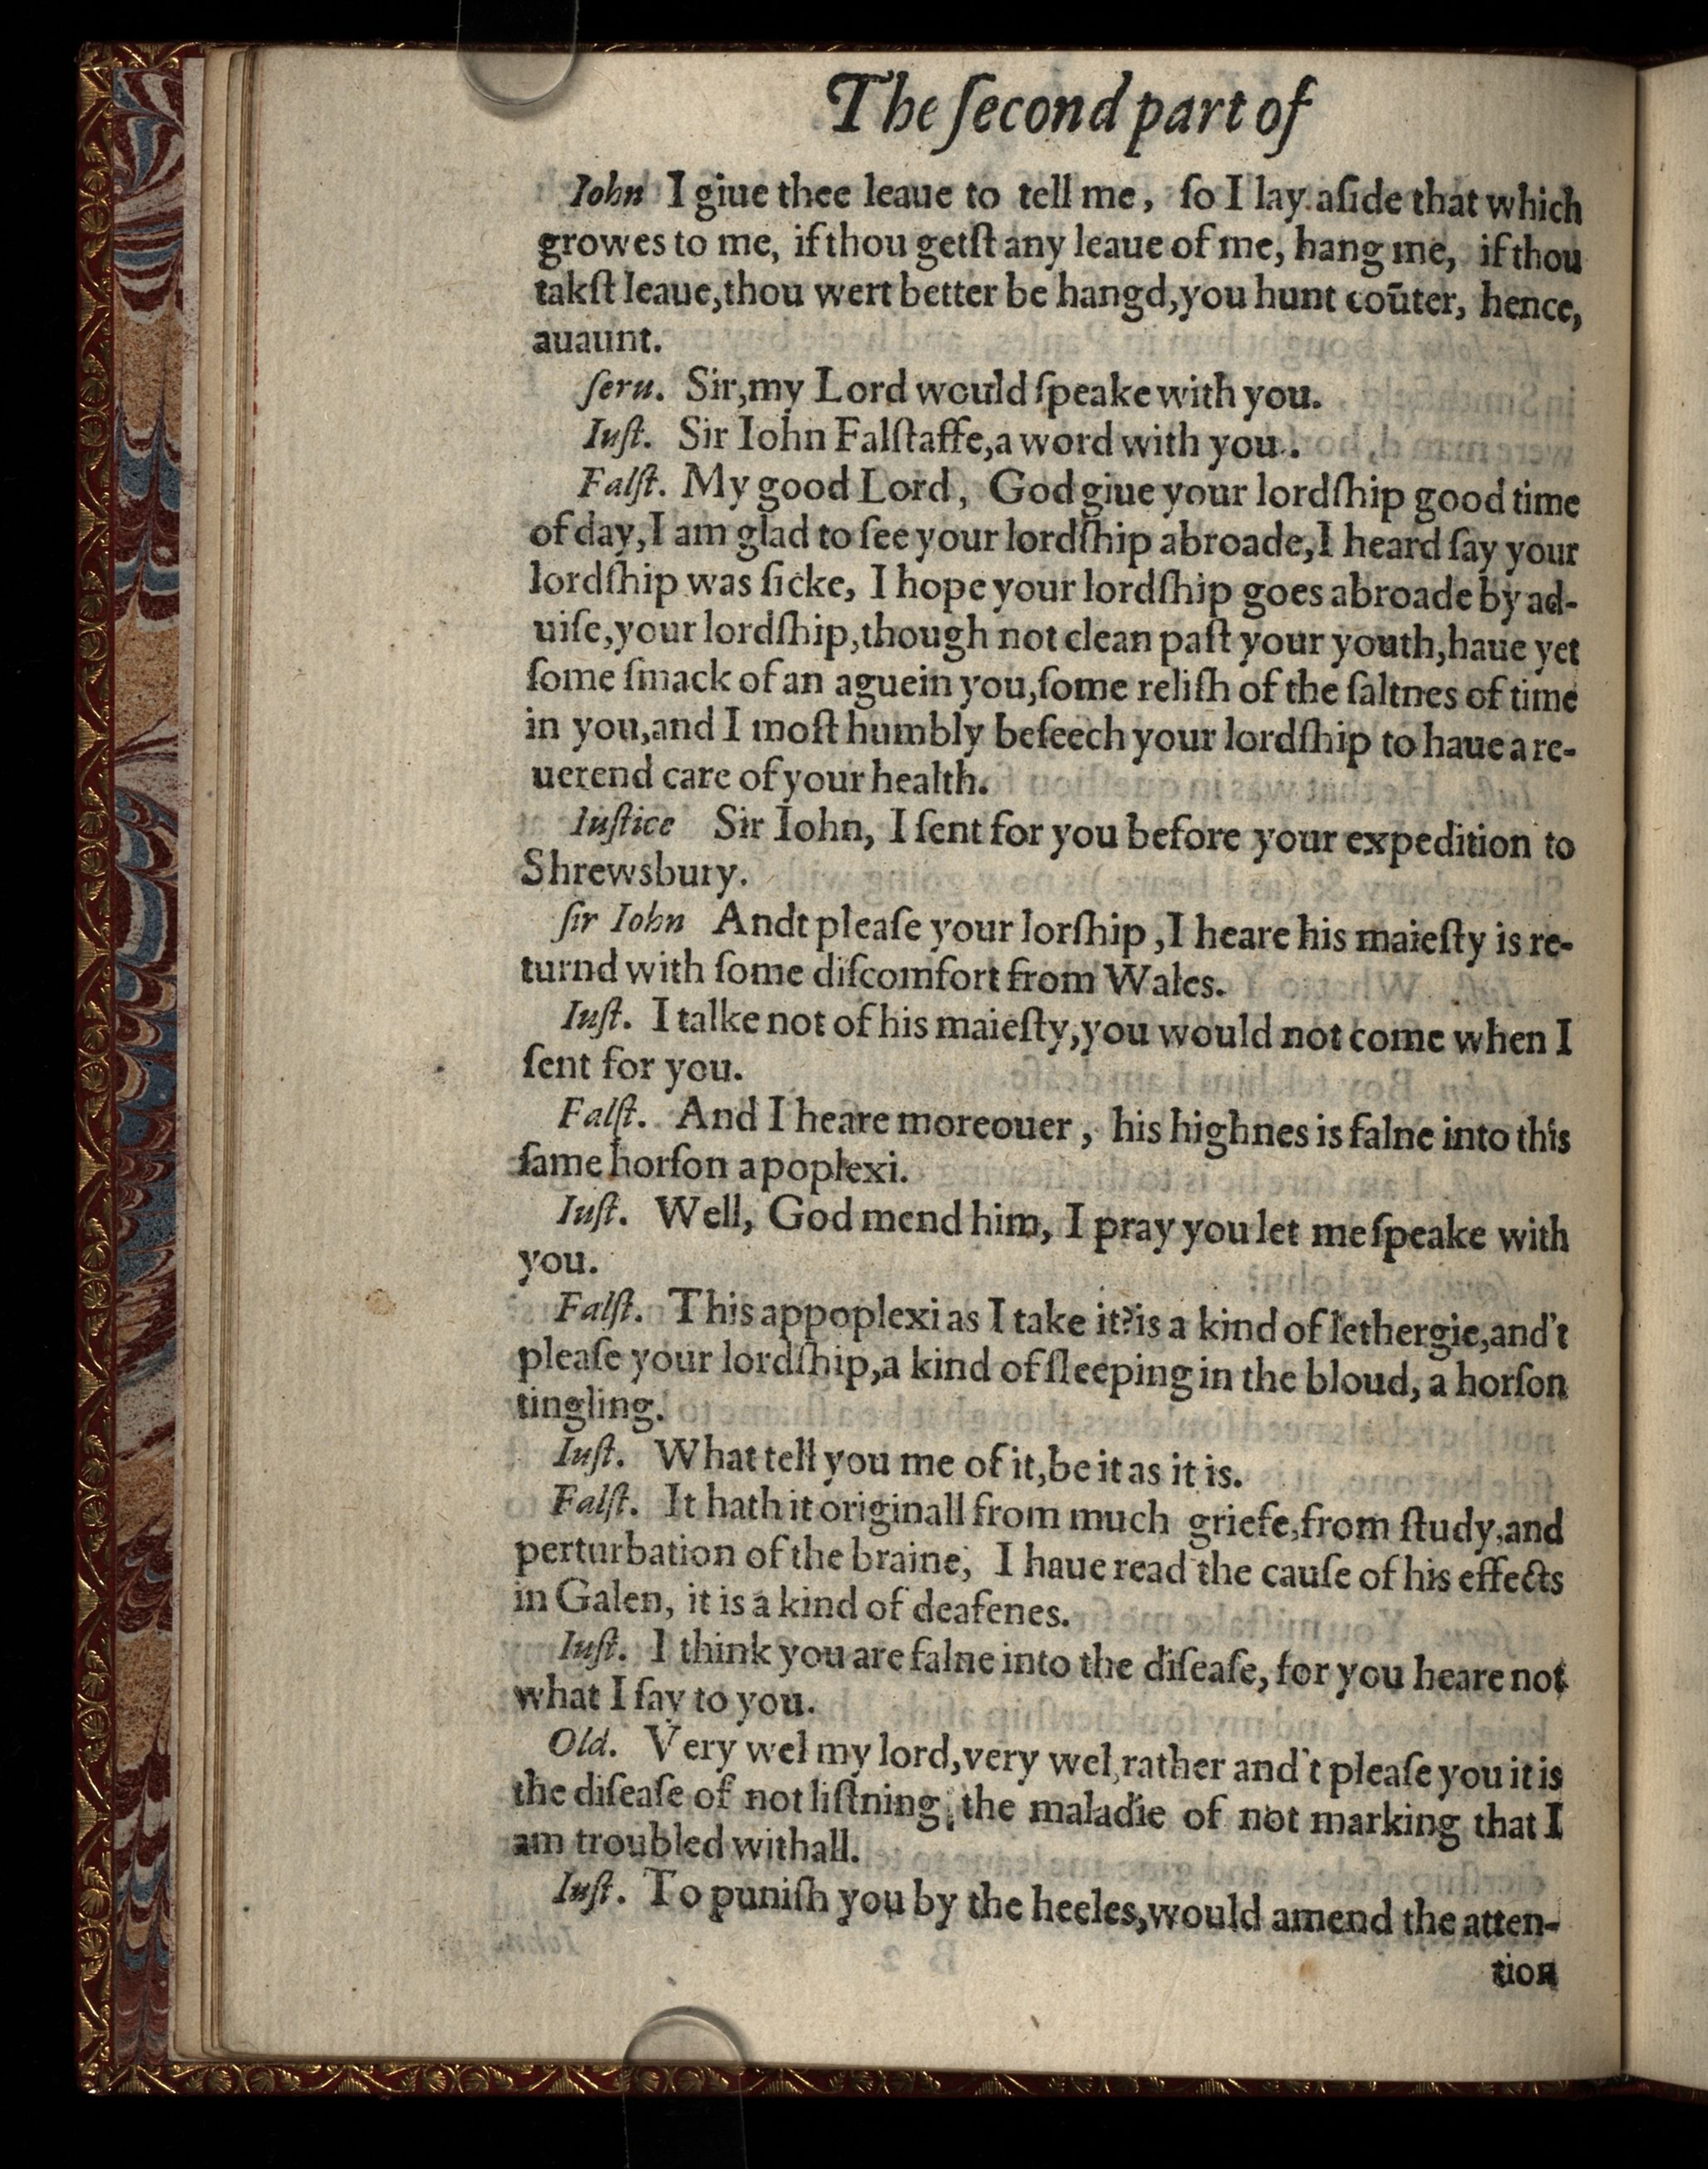 The ſecond part of
Iohn I giue thee leaue to tell me, ſo I lay aſide that which
growes to me, if thou getſt any leaue of me, hang me, if thou
takſt leaue,thou wert better be hangd,you hunt coūter, hence,
auaunt.
ſeru. Sir,my Lord would ſpeake with you.
Iuſt. Sir Iohn Falſtaffe,a word with you.
Falſt. My good Lord, God giue your lordſhip good time
of day,I am glad to ſee your lordſhip abroade,I heard ſay your
lordſhip was ſicke, I hope your lordſhip goes abroade by ad-
uiſe,your lordſhip,though not clean paſt your youth,haue yet
ſome ſmack of an ague in you,ſome reliſh of the ſaltnes of time
in you,and I moſt humbly beſeech your lordſhip to haue a re-
uerend care of your health.
Iuſtice Sir Iohn, I ſent for you before your expedition to
Shrewsbury.
ſir Iohn Andt pleaſe your lorſhip ,I heare his maieſty is re-
turnd with ſome diſcomfort from Wales.
Iuſt. I talke not of his maieſty,you would not come when I
ſent for you.
Falſt. And I heare moreouer, his highnes is falne into this
ſame horſon apoplexi.
Iuſt. Well, God mend him, I pray you let me ſpeake with
you.
Falſt. This appoplexi as I take it?is a kind of lethergie,and't
pleaſe your lordſhip,a kind of ſleeping in the bloud, a horſon
tingling.
Iuſt. What tell you me of it,be it as it is.
Falſt. It hath it originall from much griefe,from ſtudy,and
perturbation of the braine, I haue read the cauſe of his effects
in Galen, it is a kind of deafenes.
Iuſt. I think you are falne into the diſeaſe, for you heare not
what I ſay to you.
Old. Very wel my lord,very wel,rather and't pleaſe you it is
the diſeaſe of not liſtning, the maladie of not marking that I
am troubled withall.
Iuſt. To puniſh you by the heeles,would amend the atten-
tion